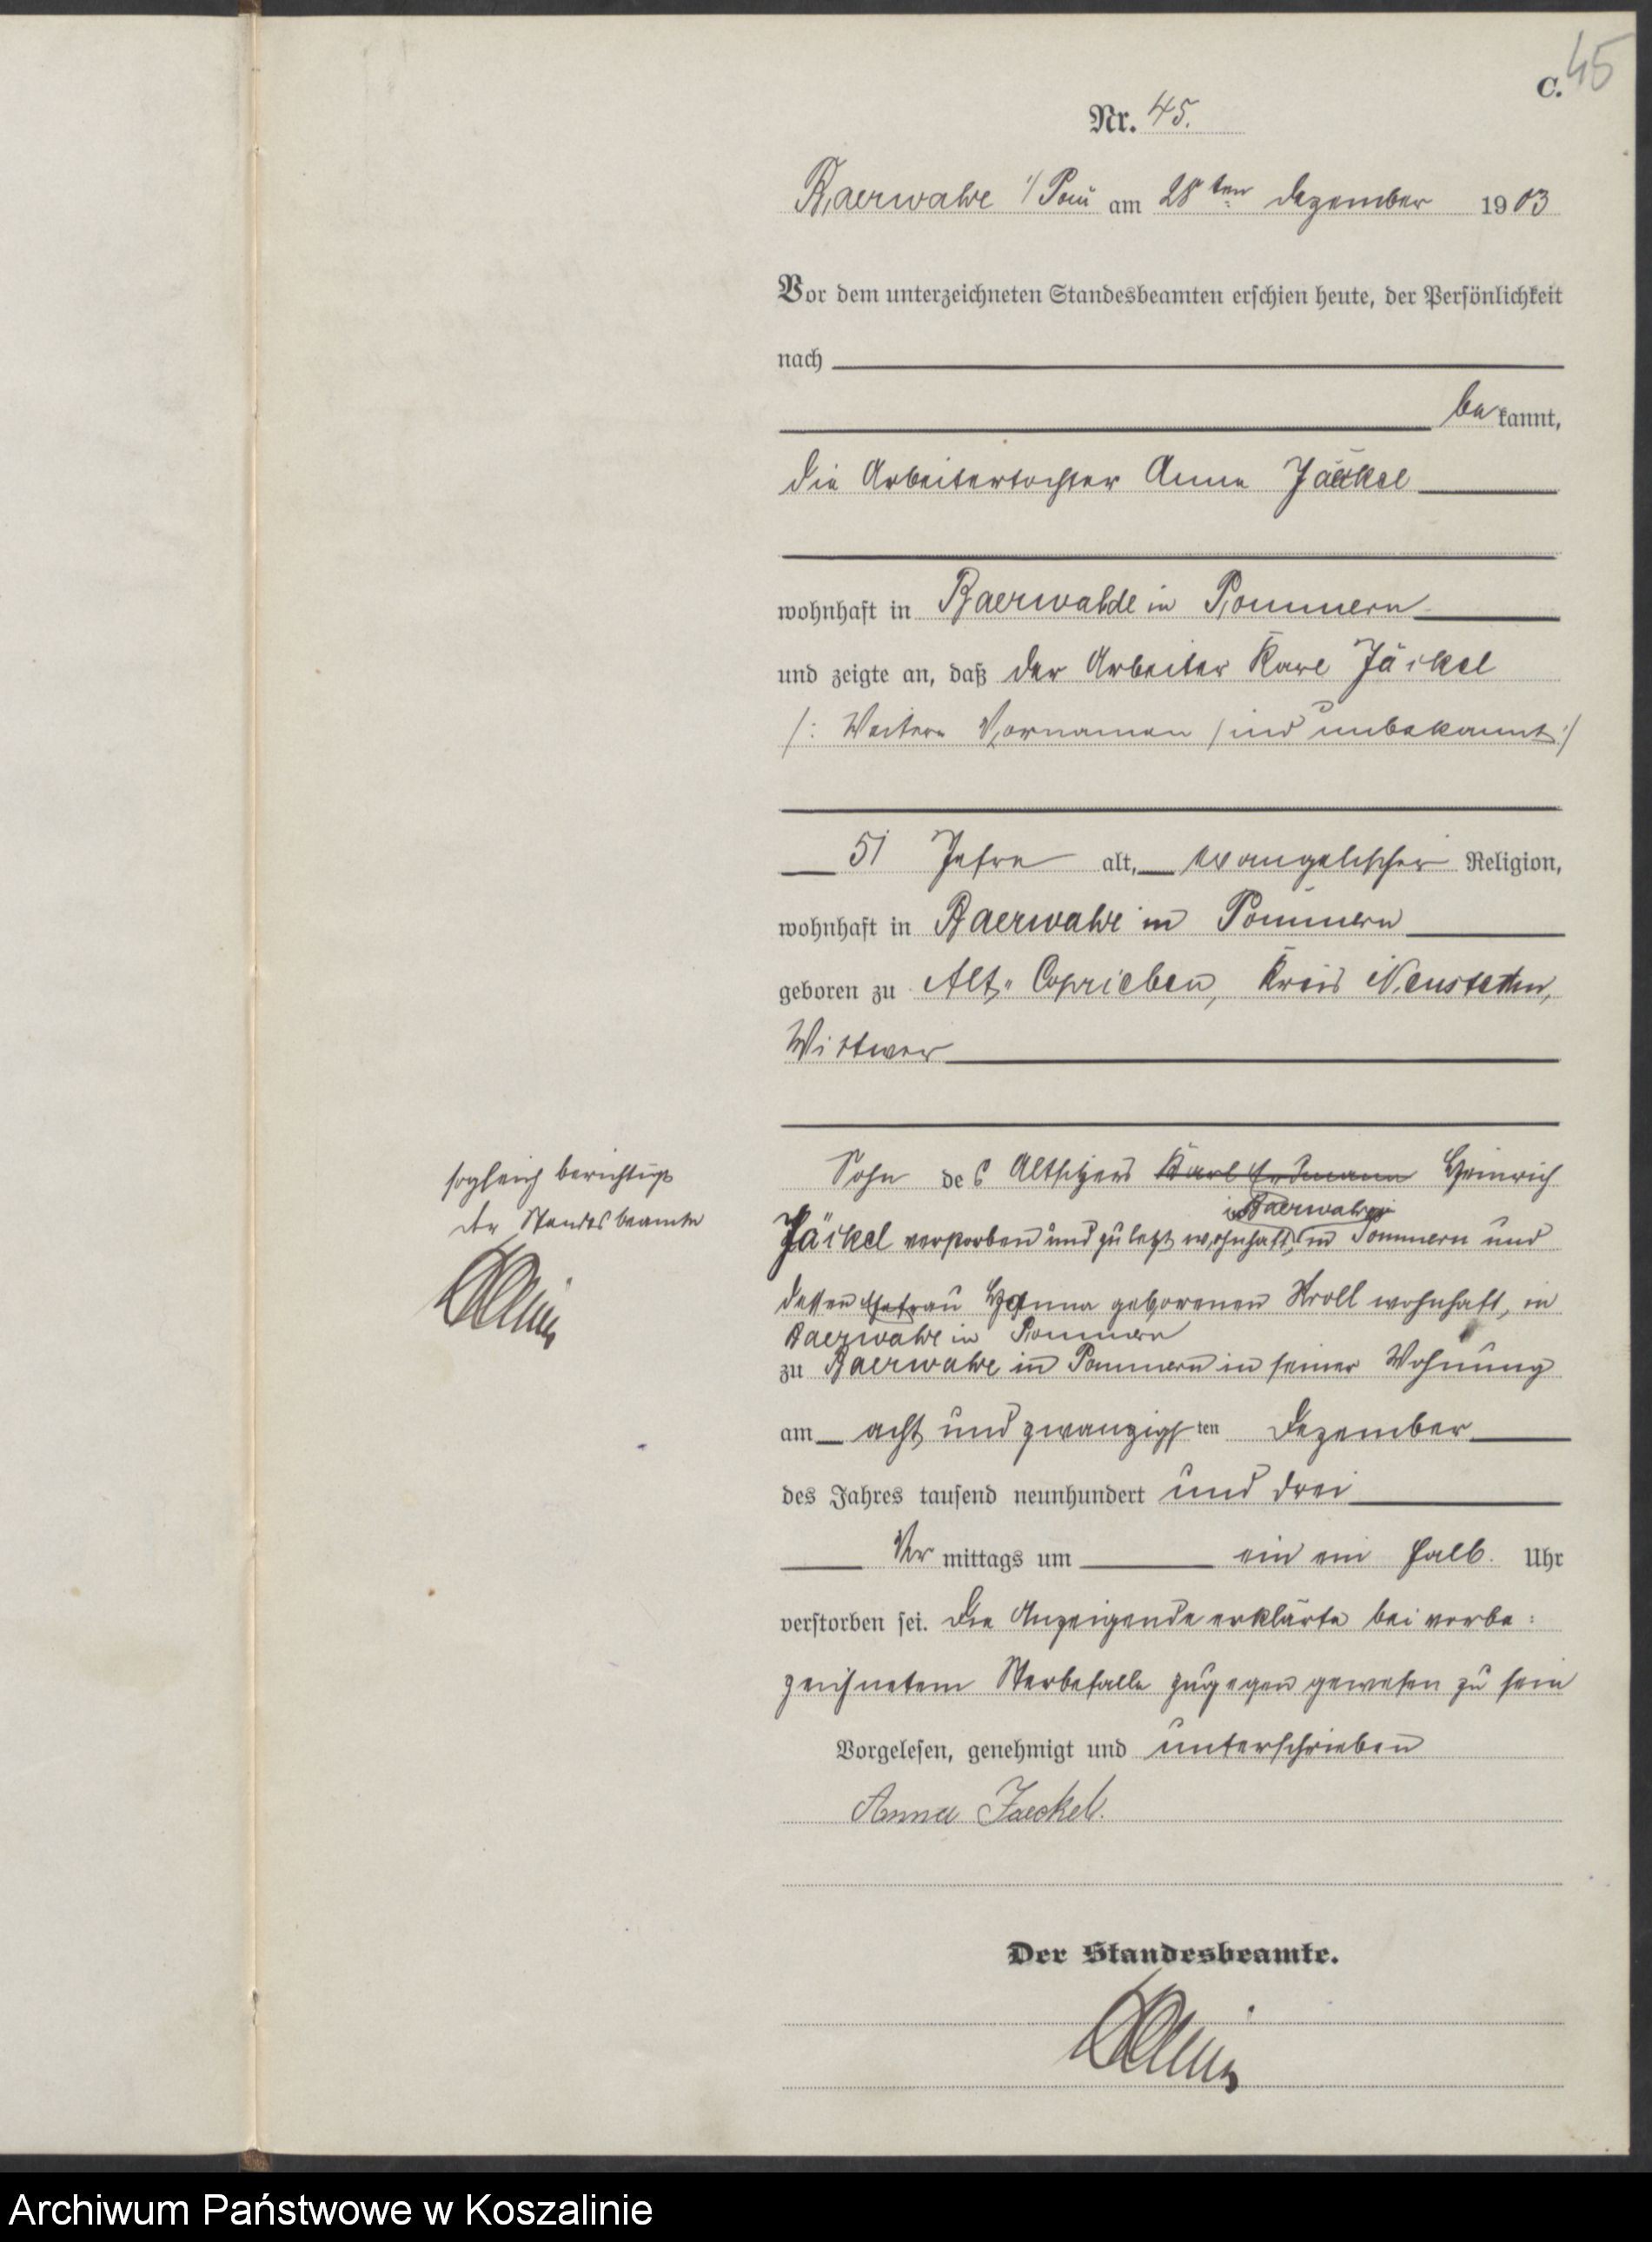 45
C.
Nr. 45.
Baerwalde i/Pom am 28ten Dezember 1903
Vor dem unterzeichneten Standesbeamten erschien heute, der Persönlichkeit
nach
be kannt,
die Arbeitertochter Anna Jäckel
wohnhaft in Baerwalde in Pommern
und zeigte an, daß der Arbeiter Karl Jäckel
/: Weitere Vornamen sind unbekannt :/
51 Jahre alt, evangelischer Religion,
wohnhaft in Baerwalde in Pommern
geboren zu Alt-Coprieben, Kreis Neustettin,
Wittwer
Sohn des Altsitzers Karl Erdmann Heinrich
in Baerwalde
Jäckel verstorben und zuletzt wohnhaft, in Pommern und
dessen Ehefrau Hanna geborenen Kroll wohnhaft, in
Baerwalde in Pommern
zu Baerwalde in Pommern in seiner Wohnung
am acht und zwanzigsten Dezember
des Jahres tausend neunhundert und drei
Vor mittags um ein ein halb Uhr
verstorben sei. Die Anzeigende erklärte bei vorbe:
zeichnetem Sterbefalle zugegen gewesen zu sein
Vorgelesen, genehmigt und unterschrieben
Anna Jaeckel.
Der Standesbeamte.
sogleich berichtigt
der Standesbeamte
Archiwum Państwowe w Koszalinie